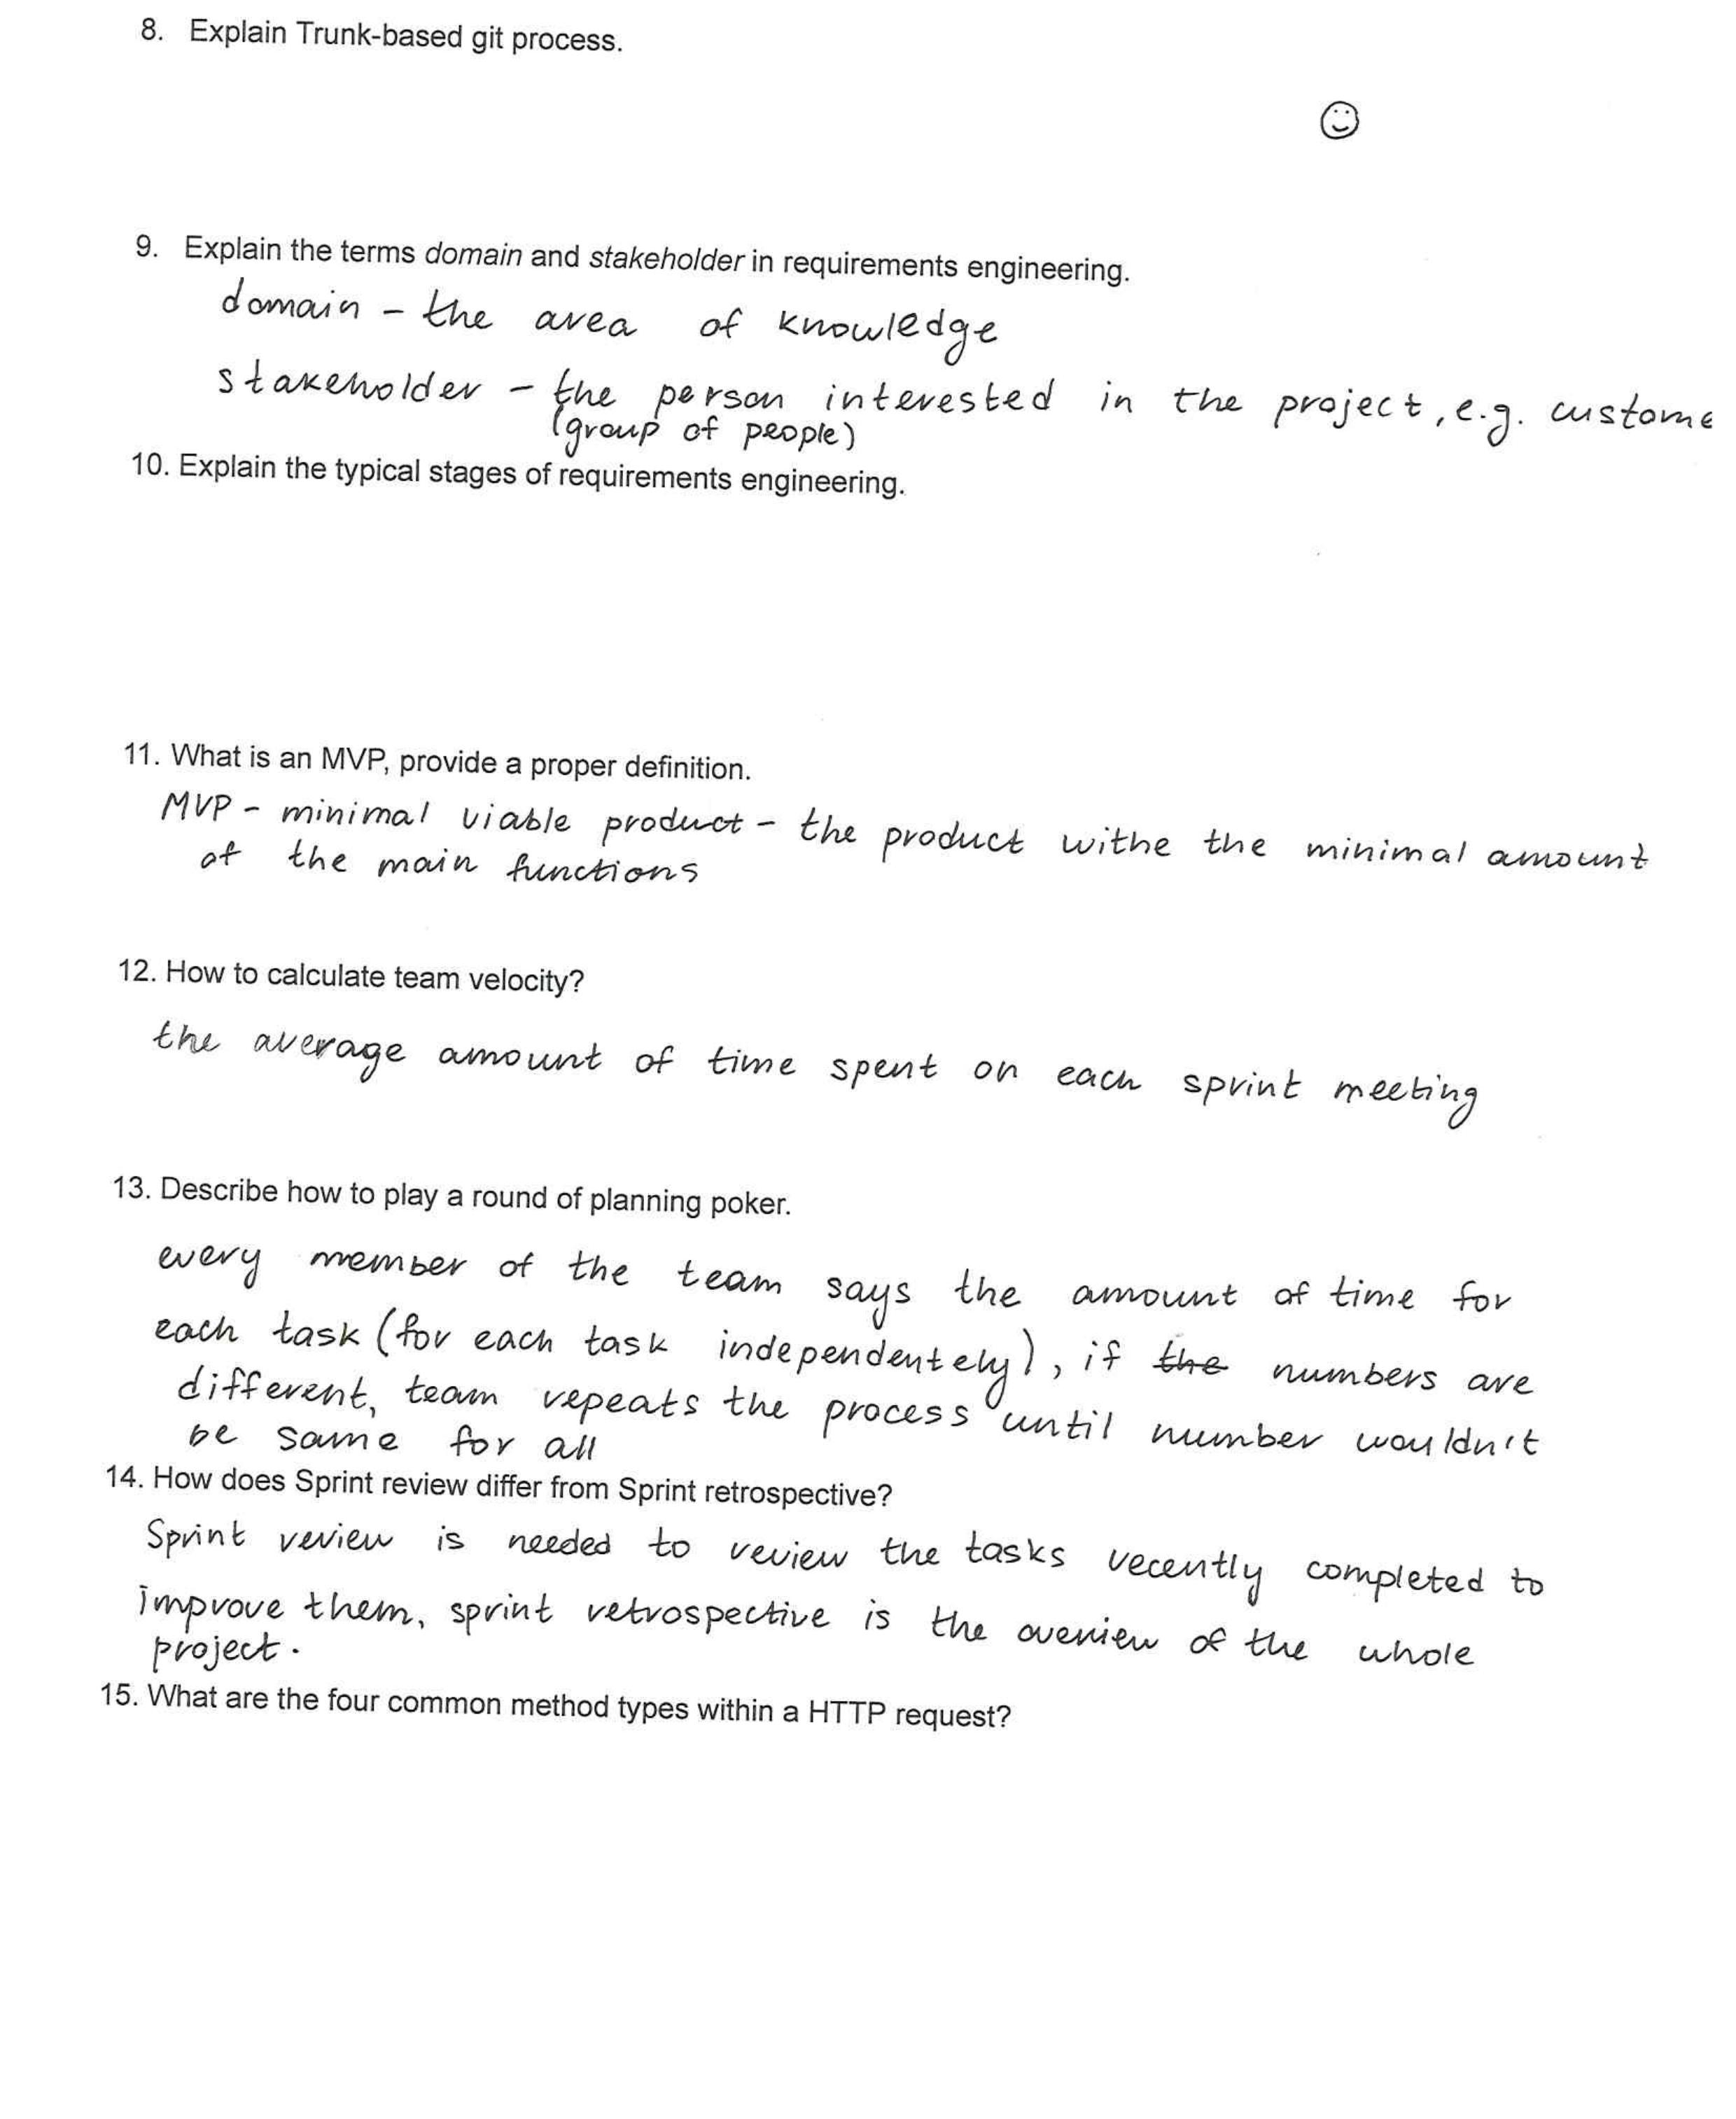 8. Explain Trunk-based git process.
9. Explain the terms domain and stakeholder in requirements engineering.
domain - the area of knowledge
stakeholder - the person interested in the project, e.g. custome
(group of people)
10. Explain the typical stages of requirements engineering.
11. What is an MVP, provide a proper definition.
MVP - minimal viable product - the product withe the minimal amount
of the main functions
12. How to calculate team velocity?
the average amount of time spent on each sprint meeting
13. Describe how to play a round of planning poker.
every member of the team says the amount of time for
each task (for each task independently), if the numbers are
different, team repeats the process until number wouldn't
be same for all
14. How does Sprint review differ from Sprint retrospective?
Sprint review is needed to review the tasks recently completed to
improve them, sprint retrospective is the overview of the whole
project.
15. What are the four common method types within a HTTP request?